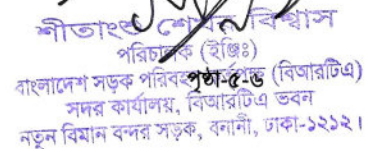 শীতাংশু শেখর বিশ্বাস
পরিচালক (ইঞ্জিঃ)
বাংলাদেশ সড়ক পরিবহণ কর্তৃপক্ষ (বিআরটিএ)
পৃষ্ঠা-৫-৬
সদর কার্যালয়, বিআরটিএ ভবন
নতুন বিমান বন্দর সড়ক, বনানী, ঢাকা-১২১২।